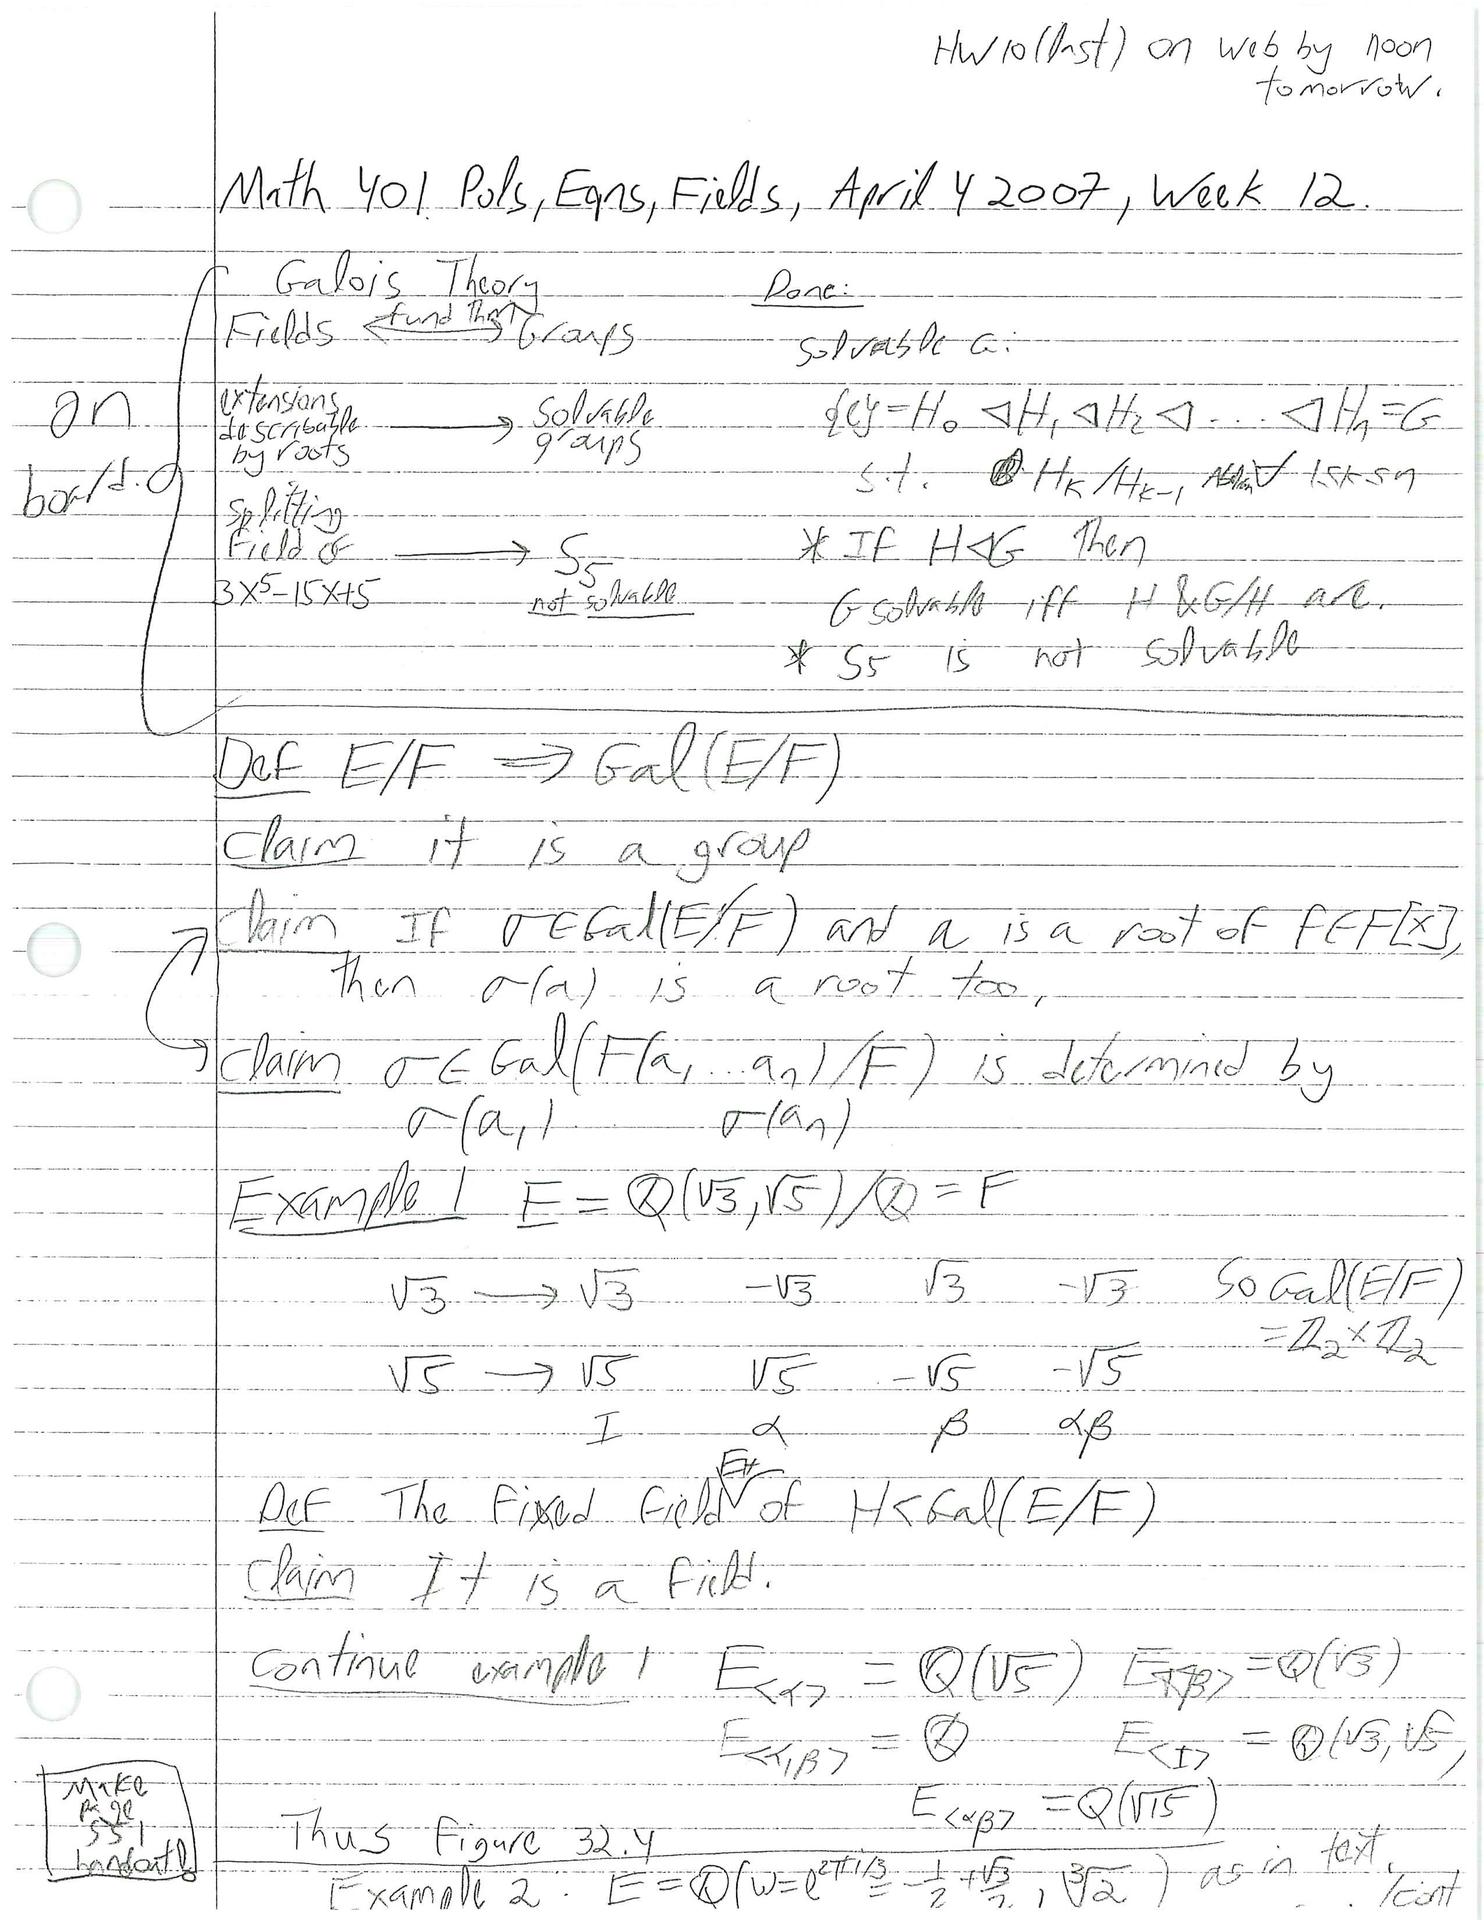 HW10(last) on web by noon
tomorrow.
Math 401 Pols, Eqns, Fields, April 4 2007, Week 12.
on
board.
Galois Theory
Fields <fund thm> Groups
extensions
describable
by roots → solvable
groups
splitting
field of → S₅
3x⁵-15x+5 not solvable
Done:
solvable G:
{e}=H₀ ◁ H₁ ◁ H₂ ◁ .... ◁ Hₙ=G
s.t. Hₖ/Hₖ₋₁ Abelian ∀ 1≤k≤n
* If H◁G Then
G solvable iff H & G/H are.
* S₅ is not solvable
Def E/F ⇒ Gal(E/F)
Claim it is a group
Claim If σ∈Gal(E/F) and a is a root of f∈F[x],
then σ(a) is a root too.
Claim σ∈Gal(F(a₁...aₙ)/F) is determined by
σ(a₁) σ(aₙ)
Example 1 E = Q(√3,√5)/Q = F
√3 → √3 -√3 √3 -√3 So Gal(E/F)
= Z₂×Z₂
√5 → √5 √5 -√5 -√5
I α β αβ
Def The Fixed field E_H of H<Gal(E/F)
Claim It is a field.
Continue example 1 E_<α> = Q(√5) E_<β> = Q(√3)
E_<α,β> = Q E_<I> = Q(√3,√5)
E_<αβ> = Q(√15)
Make
page
551
handout
Thus Figure 32.4
Example 2. E = Q(w=e^{2πi/3}=-1/2+√3/2, ∛2) as in text.
/cont